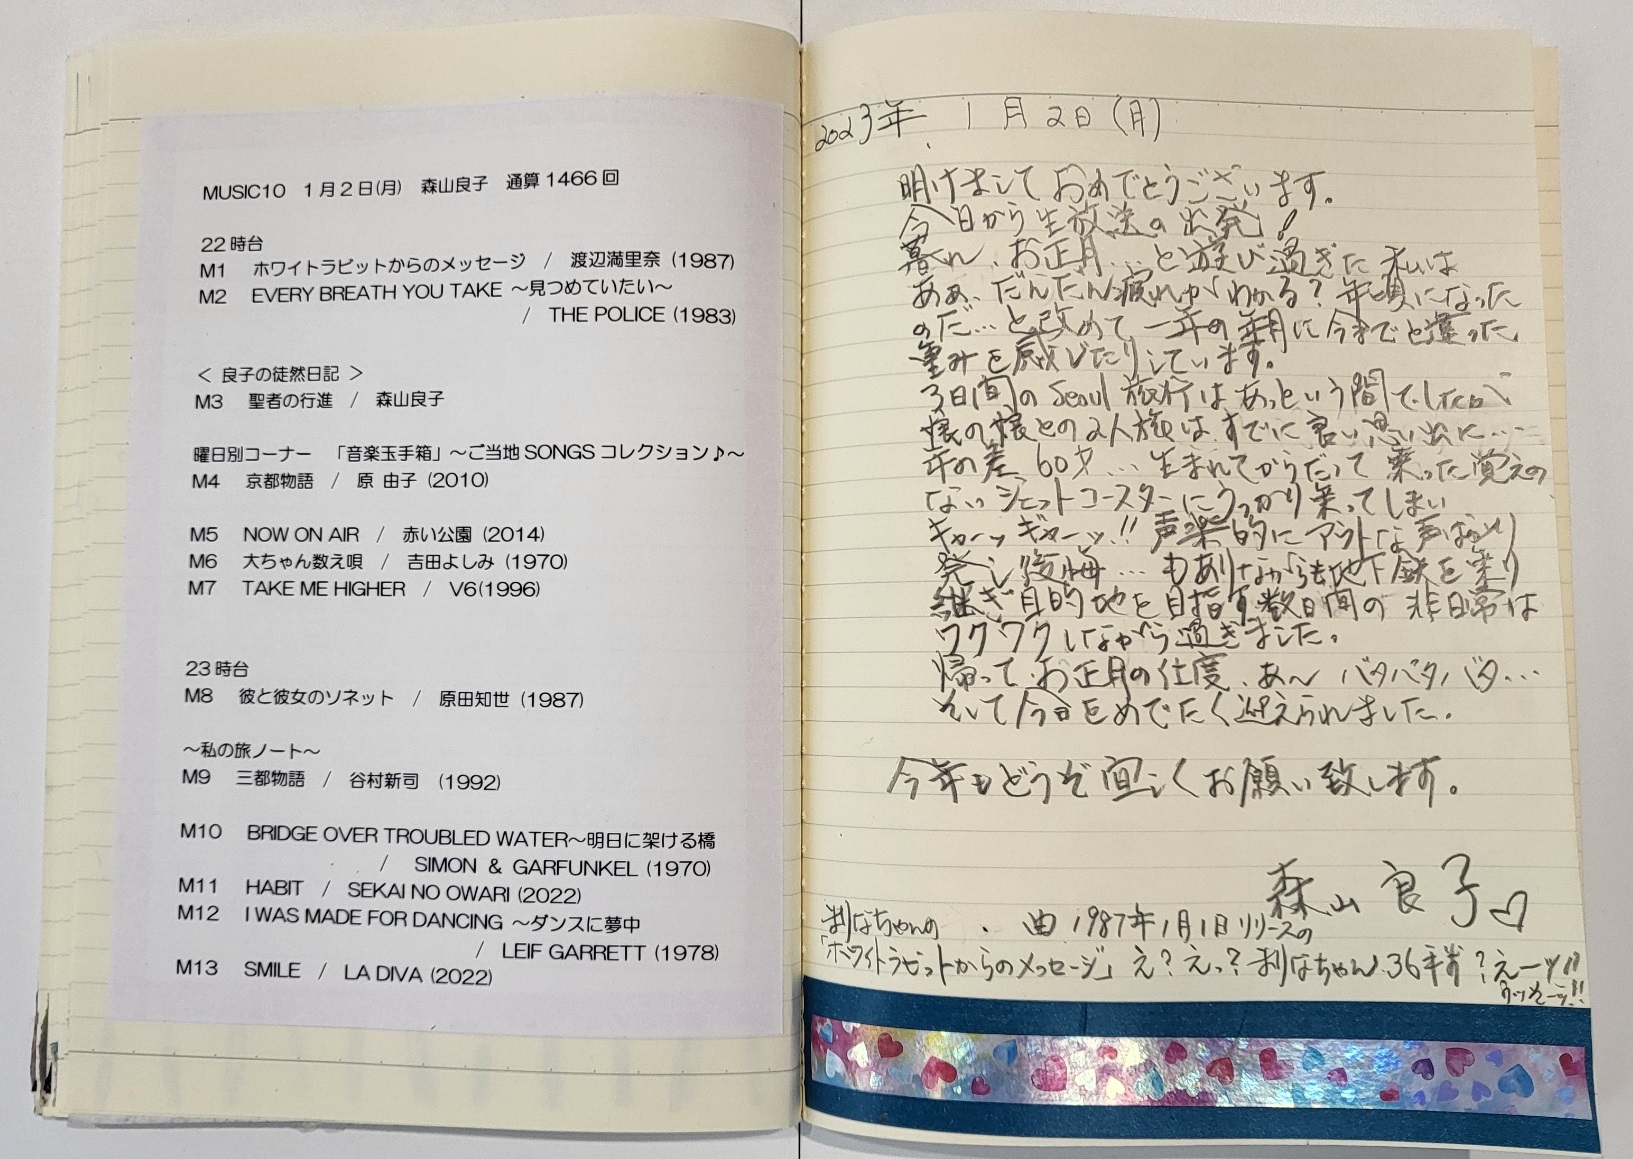 MUSIC10 1月2日(月) 森山良子 通算1466回
22時台
M1 ホワイトラビットからのメッセージ / 渡辺満里奈 (1987)
M2 EVERY BREATH YOU TAKE ～見つめていたい～
/ THE POLICE (1983)
＜ 良子の徒然日記 ＞
M3 聖者の行進 / 森山良子
曜日別コーナー 「音楽玉手箱」～ご当地SONGSコレクション♪～
M4 京都物語 / 原 由子 (2010)
M5 NOW ON AIR / 赤い公園 (2014)
M6 大ちゃん数え唄 / 吉田よしみ (1970)
M7 TAKE ME HIGHER / V6(1996)
23時台
M8 彼と彼女のソネット / 原田知世 (1987)
～私の旅ノート～
M9 三都物語 / 谷村新司 (1992)
M10 BRIDGE OVER TROUBLED WATER～明日に架ける橋
/ SIMON & GARFUNKEL (1970)
M11 HABIT / SEKAI NO OWARI (2022)
M12 I WAS MADE FOR DANCING ～ダンスに夢中
/ LEIF GARRETT (1978)
M13 SMILE / LA DIVA (2022)
2023年 1月2日(月)
明けましておめでとうございます。
今日から生放送の出発!
暮れ、お正月...と遊び過ぎた私は
あぁ、だんだん疲れが わかる?年頃になった
のだ...と改めて 一年の年月に今までと違った
重みを感じたりしています。
3日間のSeoul旅行はあっという間でしたが
娘の娘との2人旅は すでに良い思い出に...
年の差60才...生まれてからだって 乗った覚えの
ないジェットコースターにうっかり乗ってしまい
キャーッ ギャーッ!! 声楽的にアウトな声ばかり
発し後悔... もありながらも地下鉄を乗り
継ぎ目的地を目指す数日間の非日常は
ワクワクしながら過ぎました。
帰って、お正月の仕度、あ〜 バタバタバタ...
そして今日をめでたく迎えられました。
今年もどうぞ宜しくお願い致します。
森山良子♡
まりなちゃんの 曲 1987年1月1日リリースの
「ホワイトラビットからのメッセージ」 え?えっ?まりなちゃん、36年前?えーッ!!
ウッソーッ!!